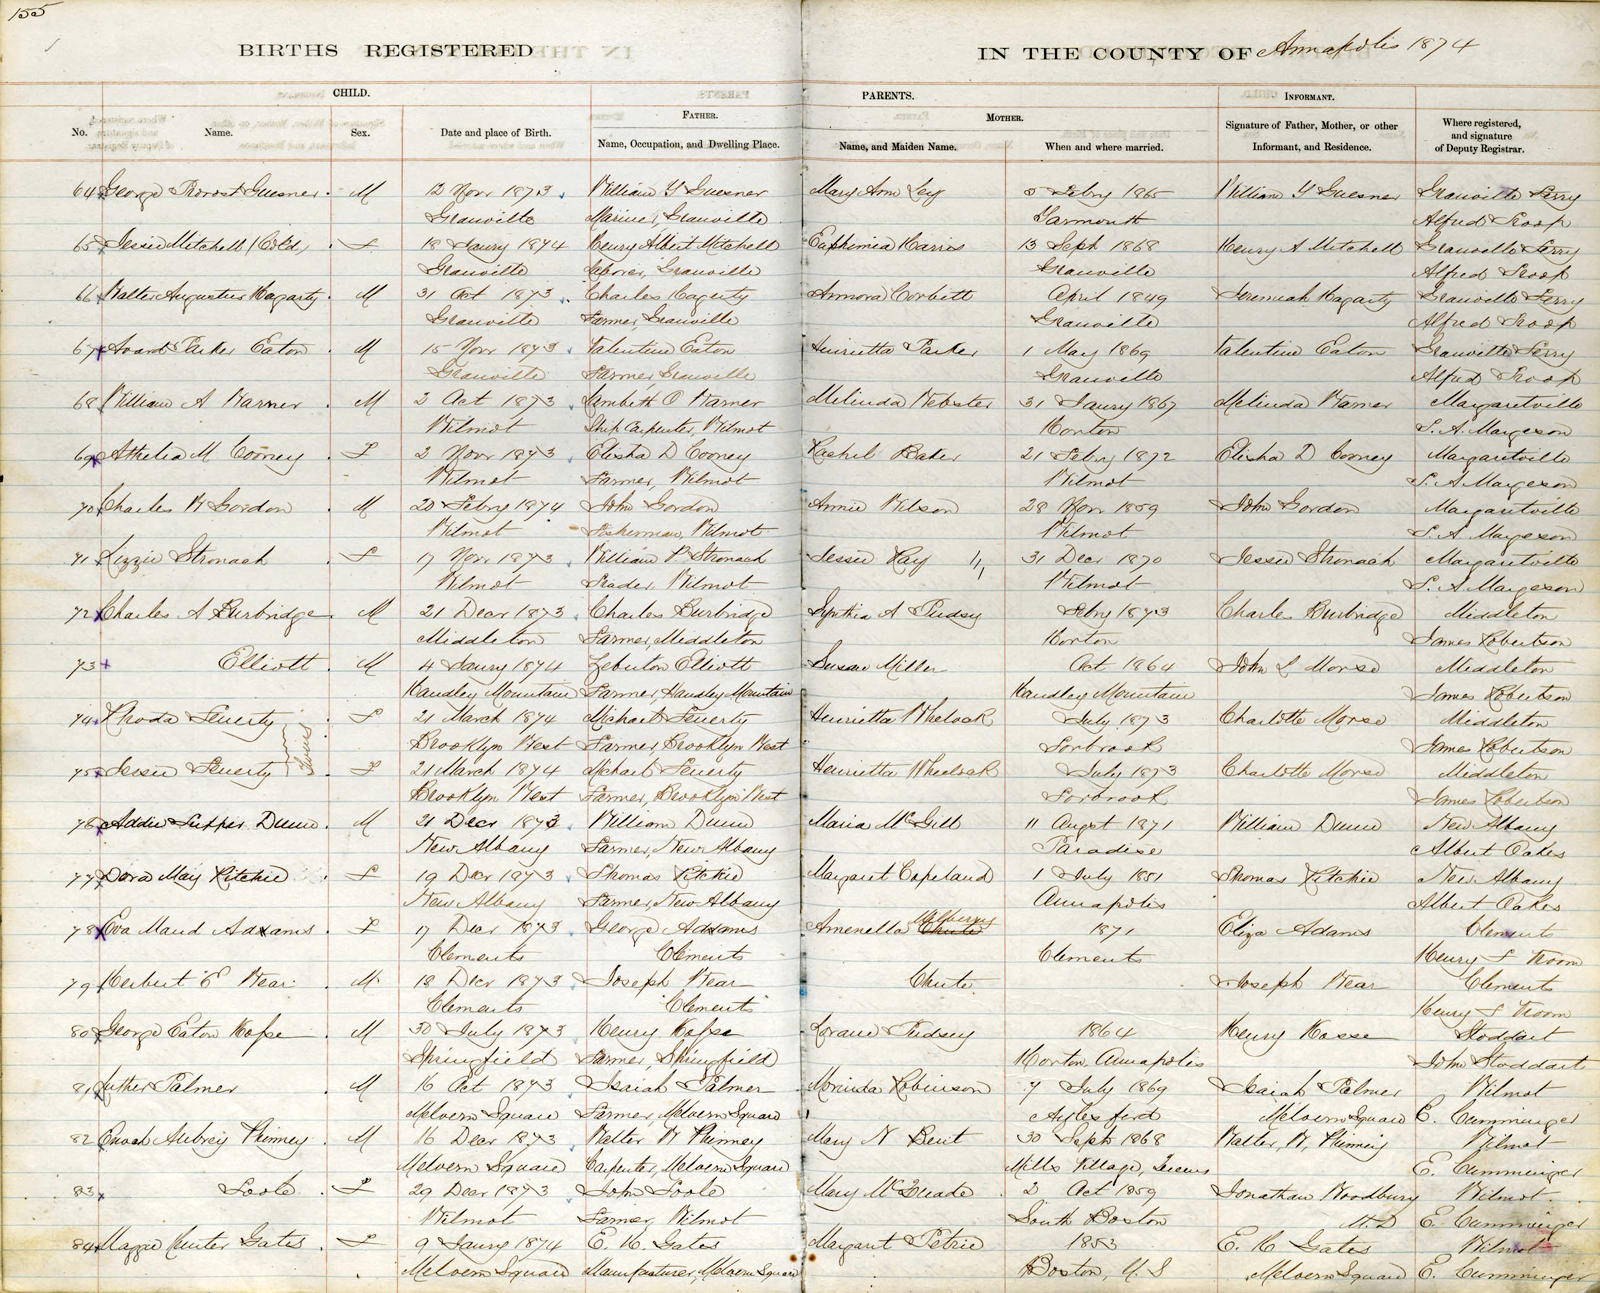 155
BIRTHS REGISTERED IN THE COUNTY OF Annapolis 1874
CHILD. PARENTS. INFORMANT.
FATHER. MOTHER.
No. Name. Sex. Date and place of Birth. Name, Occupation, and Dwelling Place. Name, and Maiden Name. When and where married. Signature of Father, Mother, or other Informant, and Residence. Where registered, and signature of Deputy Registrar.
64 George Provost Guesner M 12 Novr 1873 William Y Guesner Mary Ann 5 Feby 1865 William Y Guesner Granville Ferry
Granville Marine, Granville Yarmouth Alfred Troop
65 Jessie Mitchell (Cold) F 18 Jany 1874 Henry Albert Mitchell Euphimia Harris 13 Sept 1868 Henry A Mitchell Granville Ferry
Granville laborer, Granville Granville Alfred Troop
66 Walter Augustus Hagarty M 31 Oct 1873 Charles Hagerty Armora Corbett April 1849 Jeremiah Hagarty Granville Ferry
Granville Farmer, Granville Granville Alfred Troop
67 Parker Eaton M 15 Novr 1873 Valentine Eaton Henrietta Parker 1 May 1869 Valentine Eaton Granville Ferry
Granville Farmer, Granville Granville Alfred Troop
68 William A Warner M 2 Oct 1873 O Warner Melinda Webster 31 Jany 1867 Melinda Warner Margaretville
Wilmot Ship Carpenter, Wilmot Horton S. A. Margeson
69 Athelia M Cooney F 2 Novr 1873 Elisha D Cooney Rachel Baker 21 Feby 1872 Elisha D Cooney Margaretville
Wilmot Farmer, Wilmot Wilmot S. A Margeson
70 Charles W Gordon M 20 Feby 1874 John Gordon Annie Wilson 28 Novr 1859 John Gordon Margaretville
Wilmot Fisherman, Wilmot Wilmot S. A Margeson
71 Lizzie Stronach F 17 Novr 1873 William P Stronach Jessie Ray 31 Decr 1870 Jessie Stronach Margaretville
Wilmot Trader, Wilmot Wilmot S. A Margeson
72 Charles A Burbridge M 21 Decr 1873 Charles Burbridge Synthia A Pudsy Feby 1873 Charles Burbridge Middleton
Middleton Farmer, Middleton Horton James Robertson
73 Elliott M 4 Jany 1874 Zebulon Elliott Susan Miller Oct 1864 John L Morse Middleton
Handley Mountain Farmer, Handley Mountain Handley Mountain James Robertson
74 Rhoda Feverty F 21 March 1874 Michael Feverty Henrietta Wheelock July 1873 Charlotte Morse Middleton
Twins
Brooklyn West Farmer, Brooklyn West Torbrook James Robertson
75 Jessie Feverty F 21 March 1874 Michael Feverty Henrietta Wheelock July 1873 Charlotte Morse Middleton
Brooklyn West Farmer, Brooklyn West Torbrook James Robertson
76 Addie Tupper Dunn M 21 Decr 1873 William Dunn Maria McGill 11 Augst 1871 William Dunn New Albany
New Albany Farmer, New Albany Paradise Albert Oakes
77 Dora May Ritchie F 19 Decr 1873 Thomas Ritchie Margaret Copeland 1 July 1851 Thomas Ritchie New Albany
New Albany Farmer, New Albany Annapolis Albert Oakes
78 Eva Maud Adams F 17 Decr 1873 George Adams Amenella Chute 1871 Eliza Adams Clements
Clements Clements Clements Henry S Vroom
79 Herbert E Wear M 18 Decr 1873 Joseph Wear Chute Joseph Wear Clements
Clements Clements Henry S Vroom
80 George Eaton Hosse M 30 July 1873 Henry Hosse Loraine Pudsey 1864 Henry Hosse Stoddart
Springfield Farmer, Springfield Horton, Annapolis John Stoddart
81 Luther Palmer M 16 Oct 1873 Isaiah Palmer Morinda Robinson 7 July 1869 Isaiah Palmer Wilmot
Melvern Square Farmer, Melvern Square Aylesford Melvern Square E. Cumminger
82 Enoch Aubrey Phinney M 16 Decr 1873 Walter W Phinney Mary N Bent 30 Sept 1868 Walter, W, Phinney Wilmot
Melvern Square Carpenter, Melvern Square Mills Village, Queens E. Cumminger
83 Soole F 29 Decr 1873 John Soole Mary McQuade 2 Oct 1859 Jonathan Woodbury Wilmot
Wilmot Farmer, Wilmot South Boston M.D E. Cumminger
84 Maggie Hunter Gates F 9 Jany 1874 E. H. Gates Margaret Petrie 1853 E. H Gates Wilmot
Melvern Square Manufacturer, Melvern Square Boston, U. S Melvern Square E. Cumminger